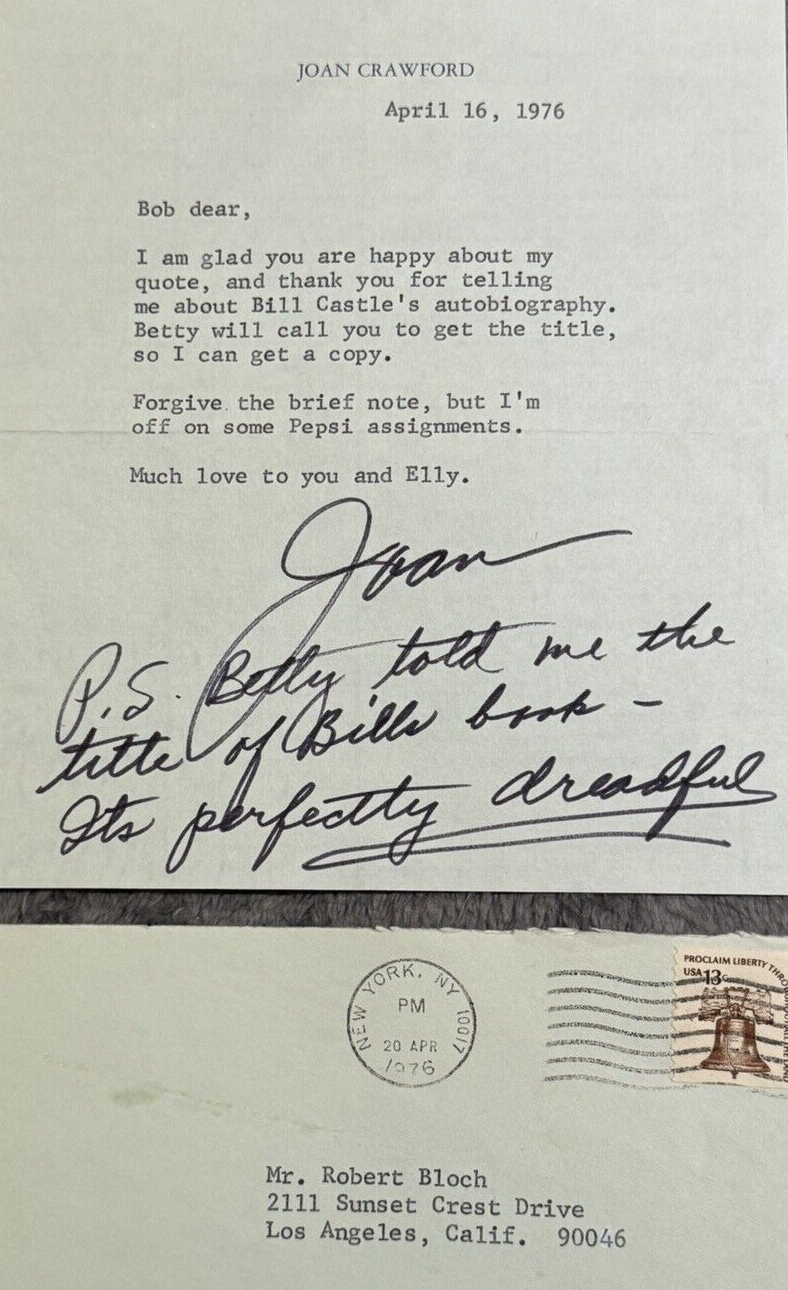 JOAN CRAWFORD
April 16, 1976
Bob dear,
I am glad you are happy about my
quote, and thank you for telling
me about Bill Castle's autobiography.
Betty will call you to get the title,
so I can get a copy.
Forgive the brief note, but I'm
off on some Pepsi assignments.
Much love to you and Elly.
Joan
P.S. Betty told me the
title of Bills book -
Its perfectly dreadful
NEW YORK, NY 10017
PM
20 APR
1976
PROCLAIM LIBERTY THRO
USA 13c
Mr. Robert Bloch
2111 Sunset Crest Drive
Los Angeles, Calif. 90046